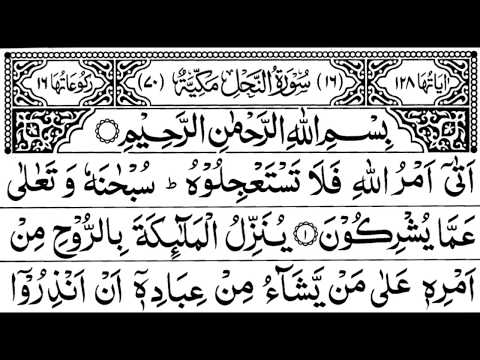 اٰيَاتُهَا ١٢٨ (١٦) سُوْرَةُ النَّحْلِ مَكِّيَّةٌ (٧٠) رُكُوْعَاتُهَا ١٦
بِسْمِ اللّٰهِ الرَّحْمٰنِ الرَّحِيْمِ
اَتٰۤى اَمْرُ اللّٰهِ فَلَا تَسْتَعْجِلُوْهُ ؕ سُبْحٰنَهٗ وَ تَعٰلٰى
عَمَّا يُشْرِكُوْنَ ۝١ يُنَزِّلُ الْمَلٰٓئِكَةَ بِالرُّوْحِ مِنْ
اَمْرِهٖ عَلٰى مَنْ يَّشَآءُ مِنْ عِبَادِهٖۤ اَنْ اَنْذِرُوْۤا